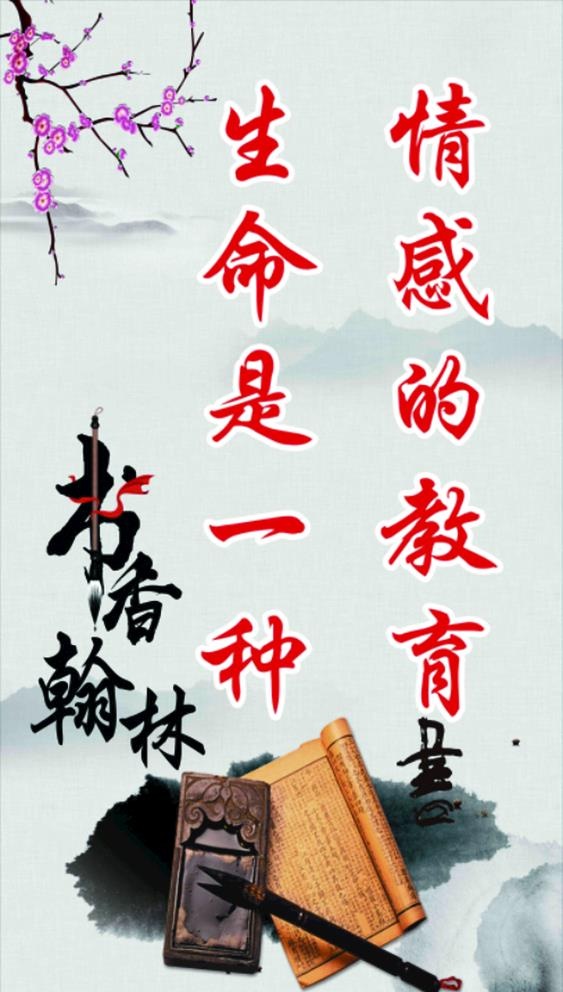 生命是一种
情感的教育
书香
翰林